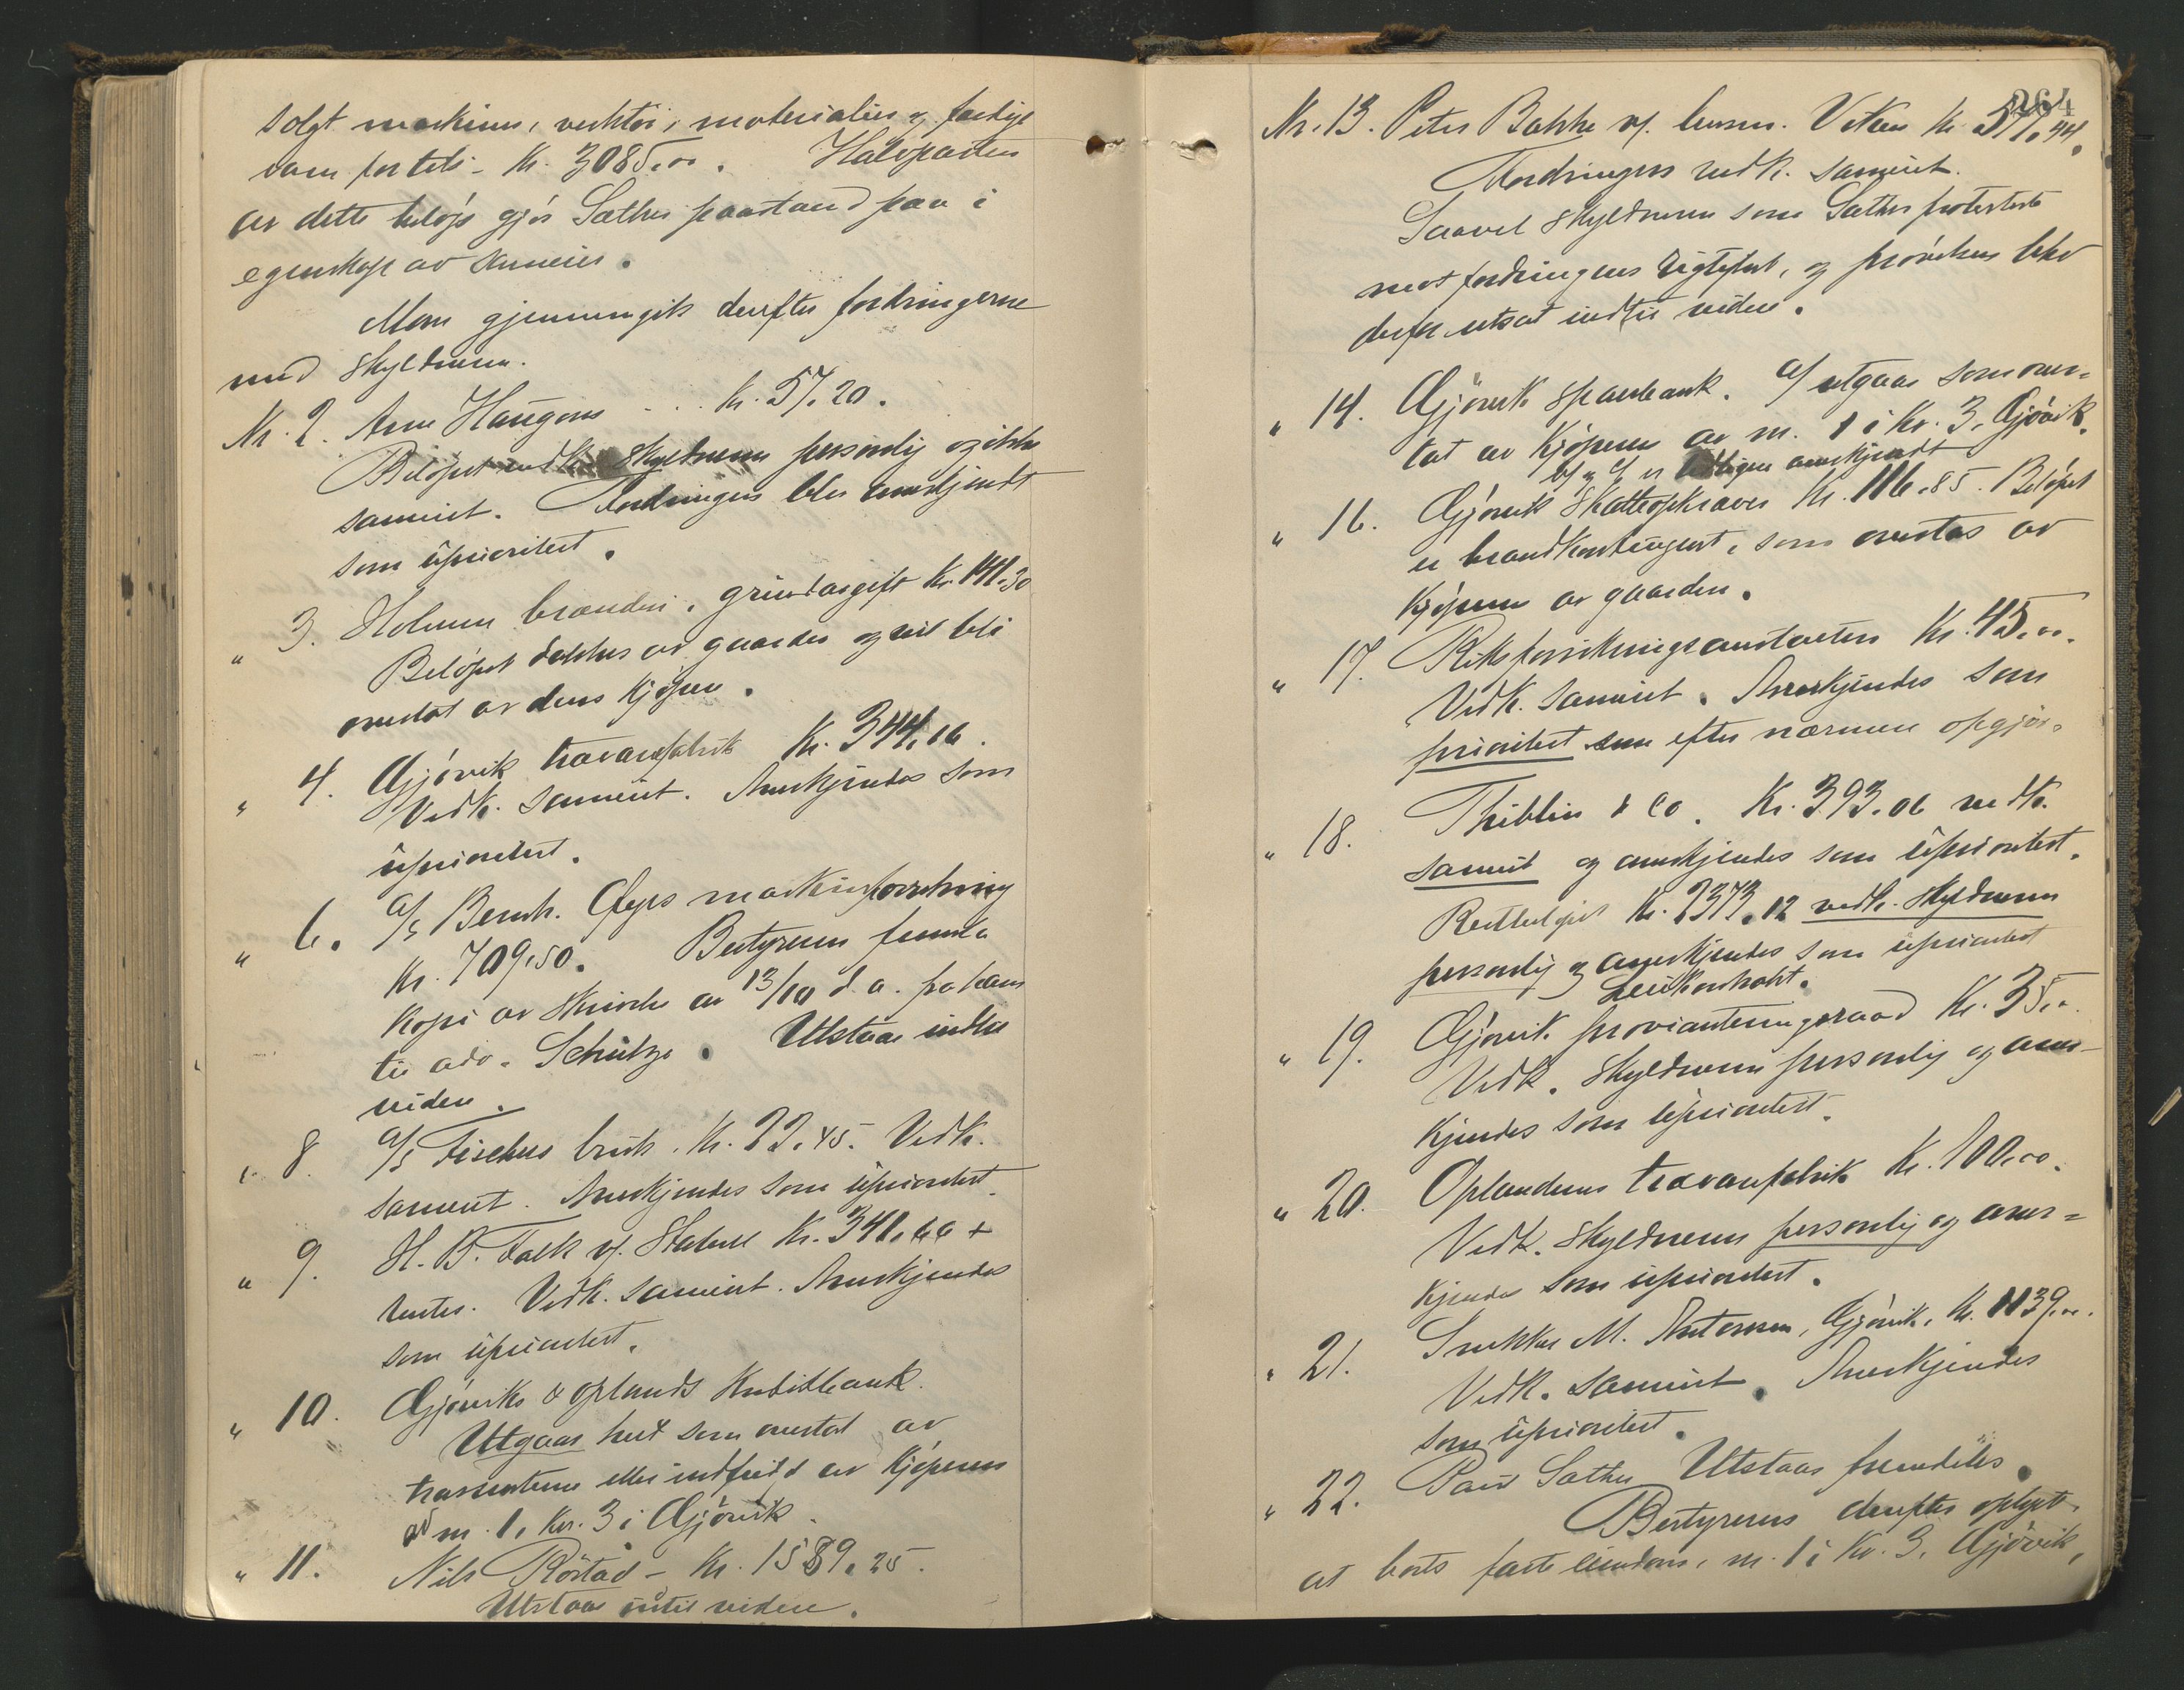 solgt maskiner, verktöi, materialier og færdige
varer for tils. Kr. 3085.00. Halvparten
av dette belöp gjör Sæther paastand paa i
egenskap av sameier.
Man gjennemgik derefter fordringerne
med skyldneren.
Nr. 2. Arne Haugom .. kr. 57.20.
Belöpet vedk. skyldneren personlig og ikke
sameiet. Fordringen blev anerkjendt
som uprioritert.
" 3. Holmen brænderi, grundavgift kr. 141.30
Belöpet dækkes av gaarden og vil bli
overtat av dens kjöper.
" 4. Gjövik trævarefabrik Kr. 344.16.
Vedk. sameiet. Anerkjendes som
uprioritert.
" 6. A/S Bernh. maskinforretning
Kr. 709.50. Bestyreren fremla
kopi av skrivelse av 13/10 d.a. fra ham
til adv. Schütze. Utstaar indtil
videre.
" 8. A/S Fischers bruk. Kr. 22.45. Vedk.
sameiet. Anerkjendes som uprioritert.
" 9. H. B. Falk v/ Kr. 341.66 +
renter. Vedk. sameiet. Anerkjendes
som uprioritert.
" 10. Gjövik & Oplands Kreditbank.
Utgaar helt som overtat av
eller indfridd av kjöperen
av m. 1, Kv. 3 i Gjövik.
" 11. Nils Röstad - Kr. 1589.25.
Utstaar indtil videre.
264
Nr. 13. Peter Bakke v/ Kr. 577.44.
Fordringen vedk. sameiet.
Saavel skyldneren som Sæther protesterte
mot fordringens rigtighet, og prövelsen blev
derfor utsat indtil videre.
" 14. Gjövik sparebank. a/ utgaar som over-
tat av kjöperen av m. 1 i Kv. 3, Gjövik.
b/ og c/ er tidligere anerkjendt
" 16. Gjövik Skatteopkræver Kr. 116.85. Belöpet
er brandkontingent, som overtas av
kjöperen av gaarden.
" 17. Riksforsikringsanstalten Kr. 45.00.
Vedk. sameiet. Anerkjendes som
prioritert efter nærmere opgjör.
" 18. Thiblin & Co. Kr. 393.06 vedk.
sameiet og anerkjendes som uprioritert.
Restbelöpet Kr. 2373.12 vedk. skyldneren
personlig og anerkjendes som uprioritert
Leiekontrakt.
" 19. Gjövik provianteringsraad Kr. 35.00.
Vedk. skyldneren personlig og aner-
kjendes som uprioritert.
" 20. Oplandenes trævarefabrik Kr. 100.00.
Vedk. skyldneren personlig og aner=
kjendes som uprioritert.
" 21. Snekker M. Antonsen, Gjövik, Kr. 1139.00.
Vedk. sameiet. Anerkjendes
som uprioritert.
" 22. Paul Sæther Utstaar fremdeles.
Bestyreren derefter oplyst
at boets faste eiendom, m. 1 i Kv. 3, Gjövik,